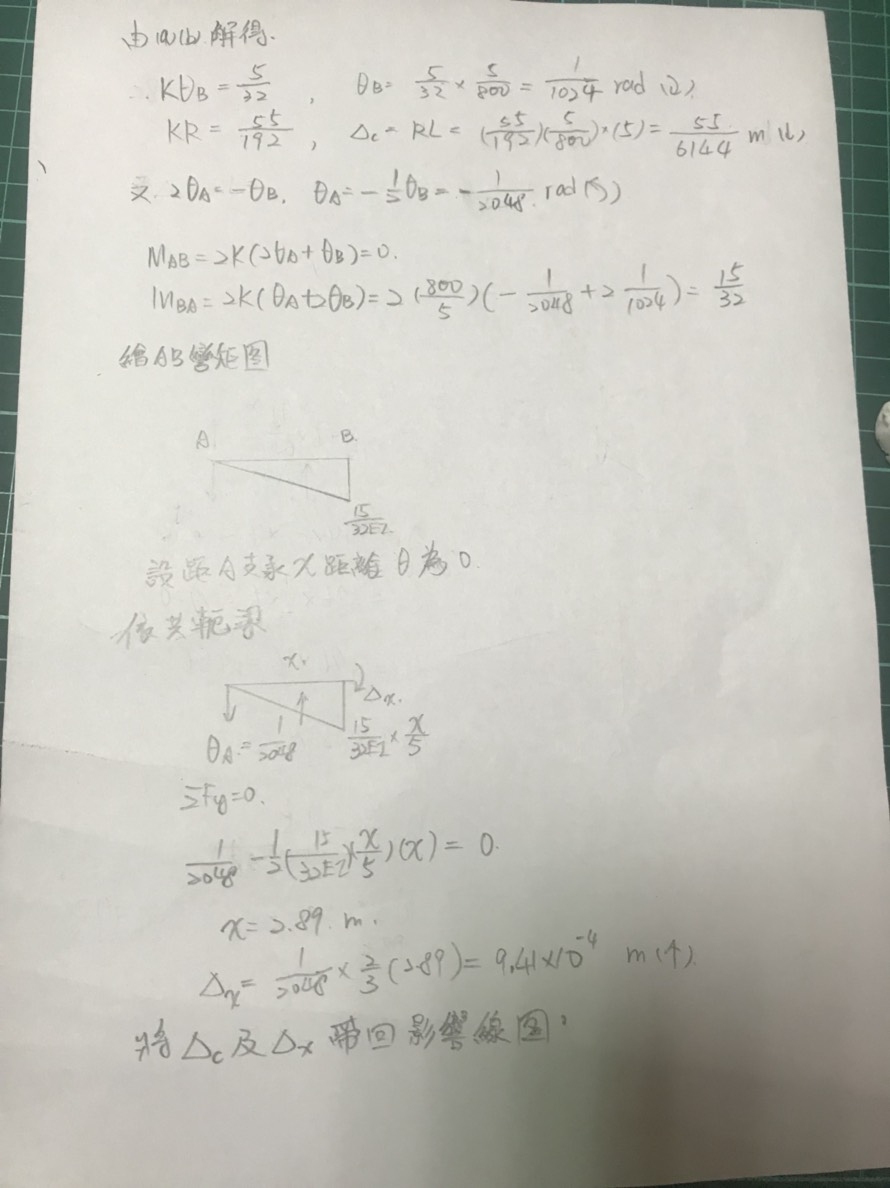 由(a)(b)解得.
∴ KθB = 5/32 , θB = 5/32 × 5/800 = 1/1024 rad (↻)
KR = 55/192 , Δc = RL = (55/192)(5/800)×(5) = 55/6144 m (↓)
又 2θA = -θB, θA = -1/2 θB = -1/2048 rad (↶)
MAB = 2K(2θA + θB) = 0.
MBA = 2K(θA + 2θB) = 2(800/5)(-1/2048 + 2 1/1024) = 15/32
繪AB彎矩图
A B
15/32EI
設距A支承 x 距離 θ 為 0.
依共軛梁
x.
Δx.
θA = 1/2048 15/32EI × x/5
ΣFy = 0.
1/2048 - 1/2(15/32EI × x/5)(x) = 0.
x = 2.89 m.
Δx = 1/2048 × 2/3 (2.89) = 9.41×10⁻⁴ m (↑)
將 Δc 及 Δx 帶回影響線图: